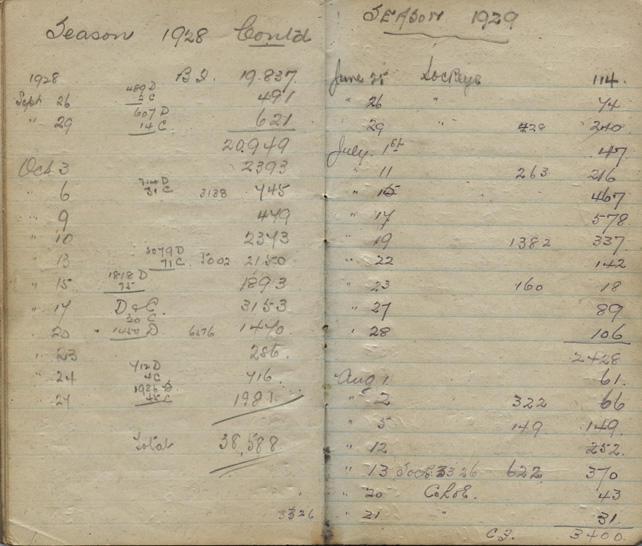 Season 1928 Contd
1928 B.F. 19.837
Sept 26 489D 2C 491
" 29 607D 14C 621
20.949
Oct 3 2393
" 6 714D 31C 3138 745
" 9 449
" 10 2343
" 13 2079D 71C 5002 2150
" 15 1818D 75 1893
" 17 D&C. 3153
" 20 " 1450D 20C 6676 1470
" 23 286.
" 24 712D 4C 716.
" 27 1981
Total 38,588
3326
SEASON 1929
June 25 Sockeye 114.
" 26 " 74
" 29 " 429 240
July. 1st 47
" 11 263 216
" 15 467
" 17 578
" 19 1382 337
" 22 142
" 23 160 18
" 27 89
" 28 106
2428
Aug 1 61.
" 2 322 66
" 5 149 149.
" 12 252.
" 13 Sock 3326 622 370
" 20 Cohoe. 43
" 21 " 31.
C.F. 3400.